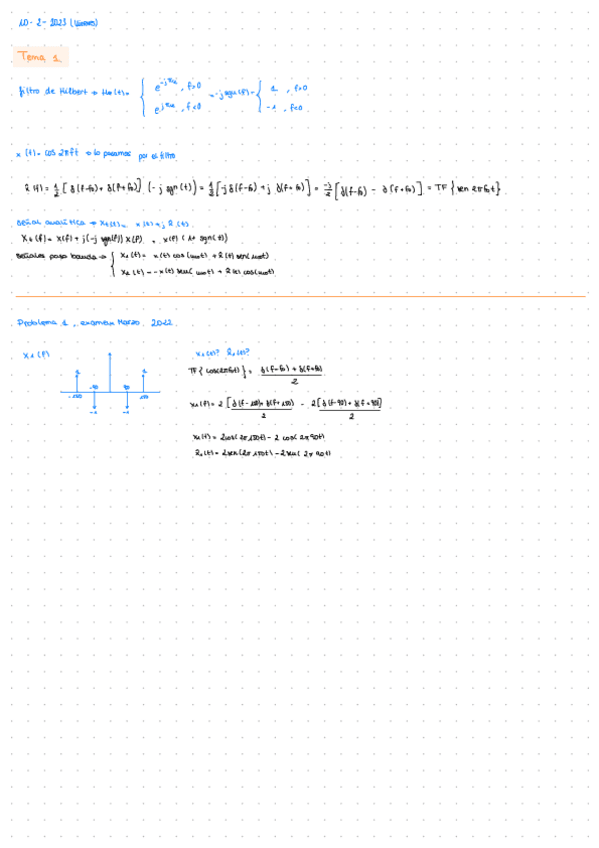 10-2-2023 (Viernes)
Tema 1
filtro de Hilbert → HH(t)= { e^-jπ/2 , f>0 = -j sgn(f) = { 1 , f>0
e^jπ/2 , f<0 -1 , f<0
x(t)= cos 2πft → lo pasamos por el filtro
x̂(f)= 1/2 [δ(f-f0)+ δ(f+f0)] (-j sgn(t)) = 1/2 [-jδ(f-f0)+j δ(f+f0)] = -j/2 [δ(f-f0) - δ(f+f0)] = TF {sen 2πf0t}
señal analítica → x+(t)= x(t)+j x̂(t).
X+(f)= X(f)+ j(-j sgn(f)) X(f) = X(f) (1+ sgn(t))
señales paso banda → { x1(t)= x(t) cos(ω0t) + x̂(t) sen(ω0t)
x2(t)= -x(t) sen(ω0t) + x̂(t) cos(ω0t)
Problema 1, examen Marzo 2022.
X1(f) x1(t)? x̂1(t)?
TF{cos(2πf0t)} = δ(f-f0) + δ(f+f0) / 2
1 -90 90 1
-150 -1 -1 150
X1(f)= 2 [δ(f-150)+ δ(f+150)] / 2 - 2[δ(f-90)+ δ(f+90)] / 2
x1(t)= 2cos(2π150t) - 2 cos(2π90t)
x̂1(t)= 2sen(2π150t) - 2sen(2π90t)